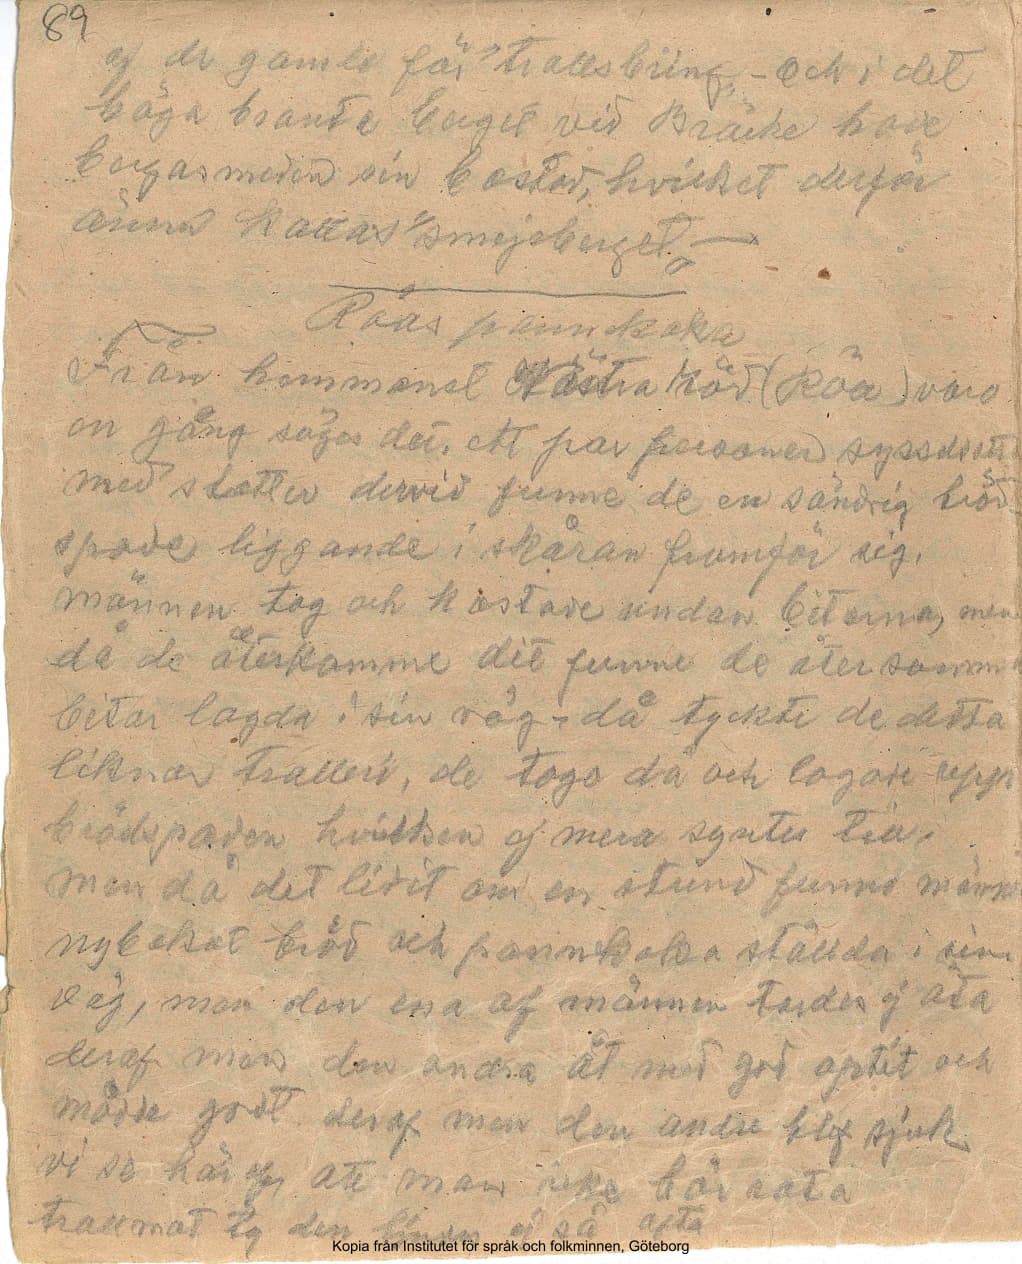 89
af de gamle för "trollsbring," - Och i det
höga branta berget vid Bräcke hade
bergasmeden sin bostad, hvilket derför
ännu kallas "smejsberget." —
Röas pannekaka
Från hemmanet Västra Röd (Röa) varo
en gång säges det, ett par personer sysselsatt
med slotter dervid funne de en söndrig bröd-
spade liggande i skåran framför sig.
männen tog och kastade undan bitarna, men
då de återkomme dit funne de åter samma
bitar lagda i sin väg - då tyckte de detta
liknar trolleri, de togo då och lagade upp
brödspaden hvilken ej mera syntes till.
men då det lidit om en stund funno männe
nybakat bröd och pannkaka ställda i sin
väg, men den ena af männen tordes ej äta
deraf men den andra åt med god aptit och
mådde godt deraf men den andre blef sjuk
vi se häraf, att man icke bör äta
trollmat ty den ej så ofta
Kopia från Institutet för språk och folkminnen, Göteborg